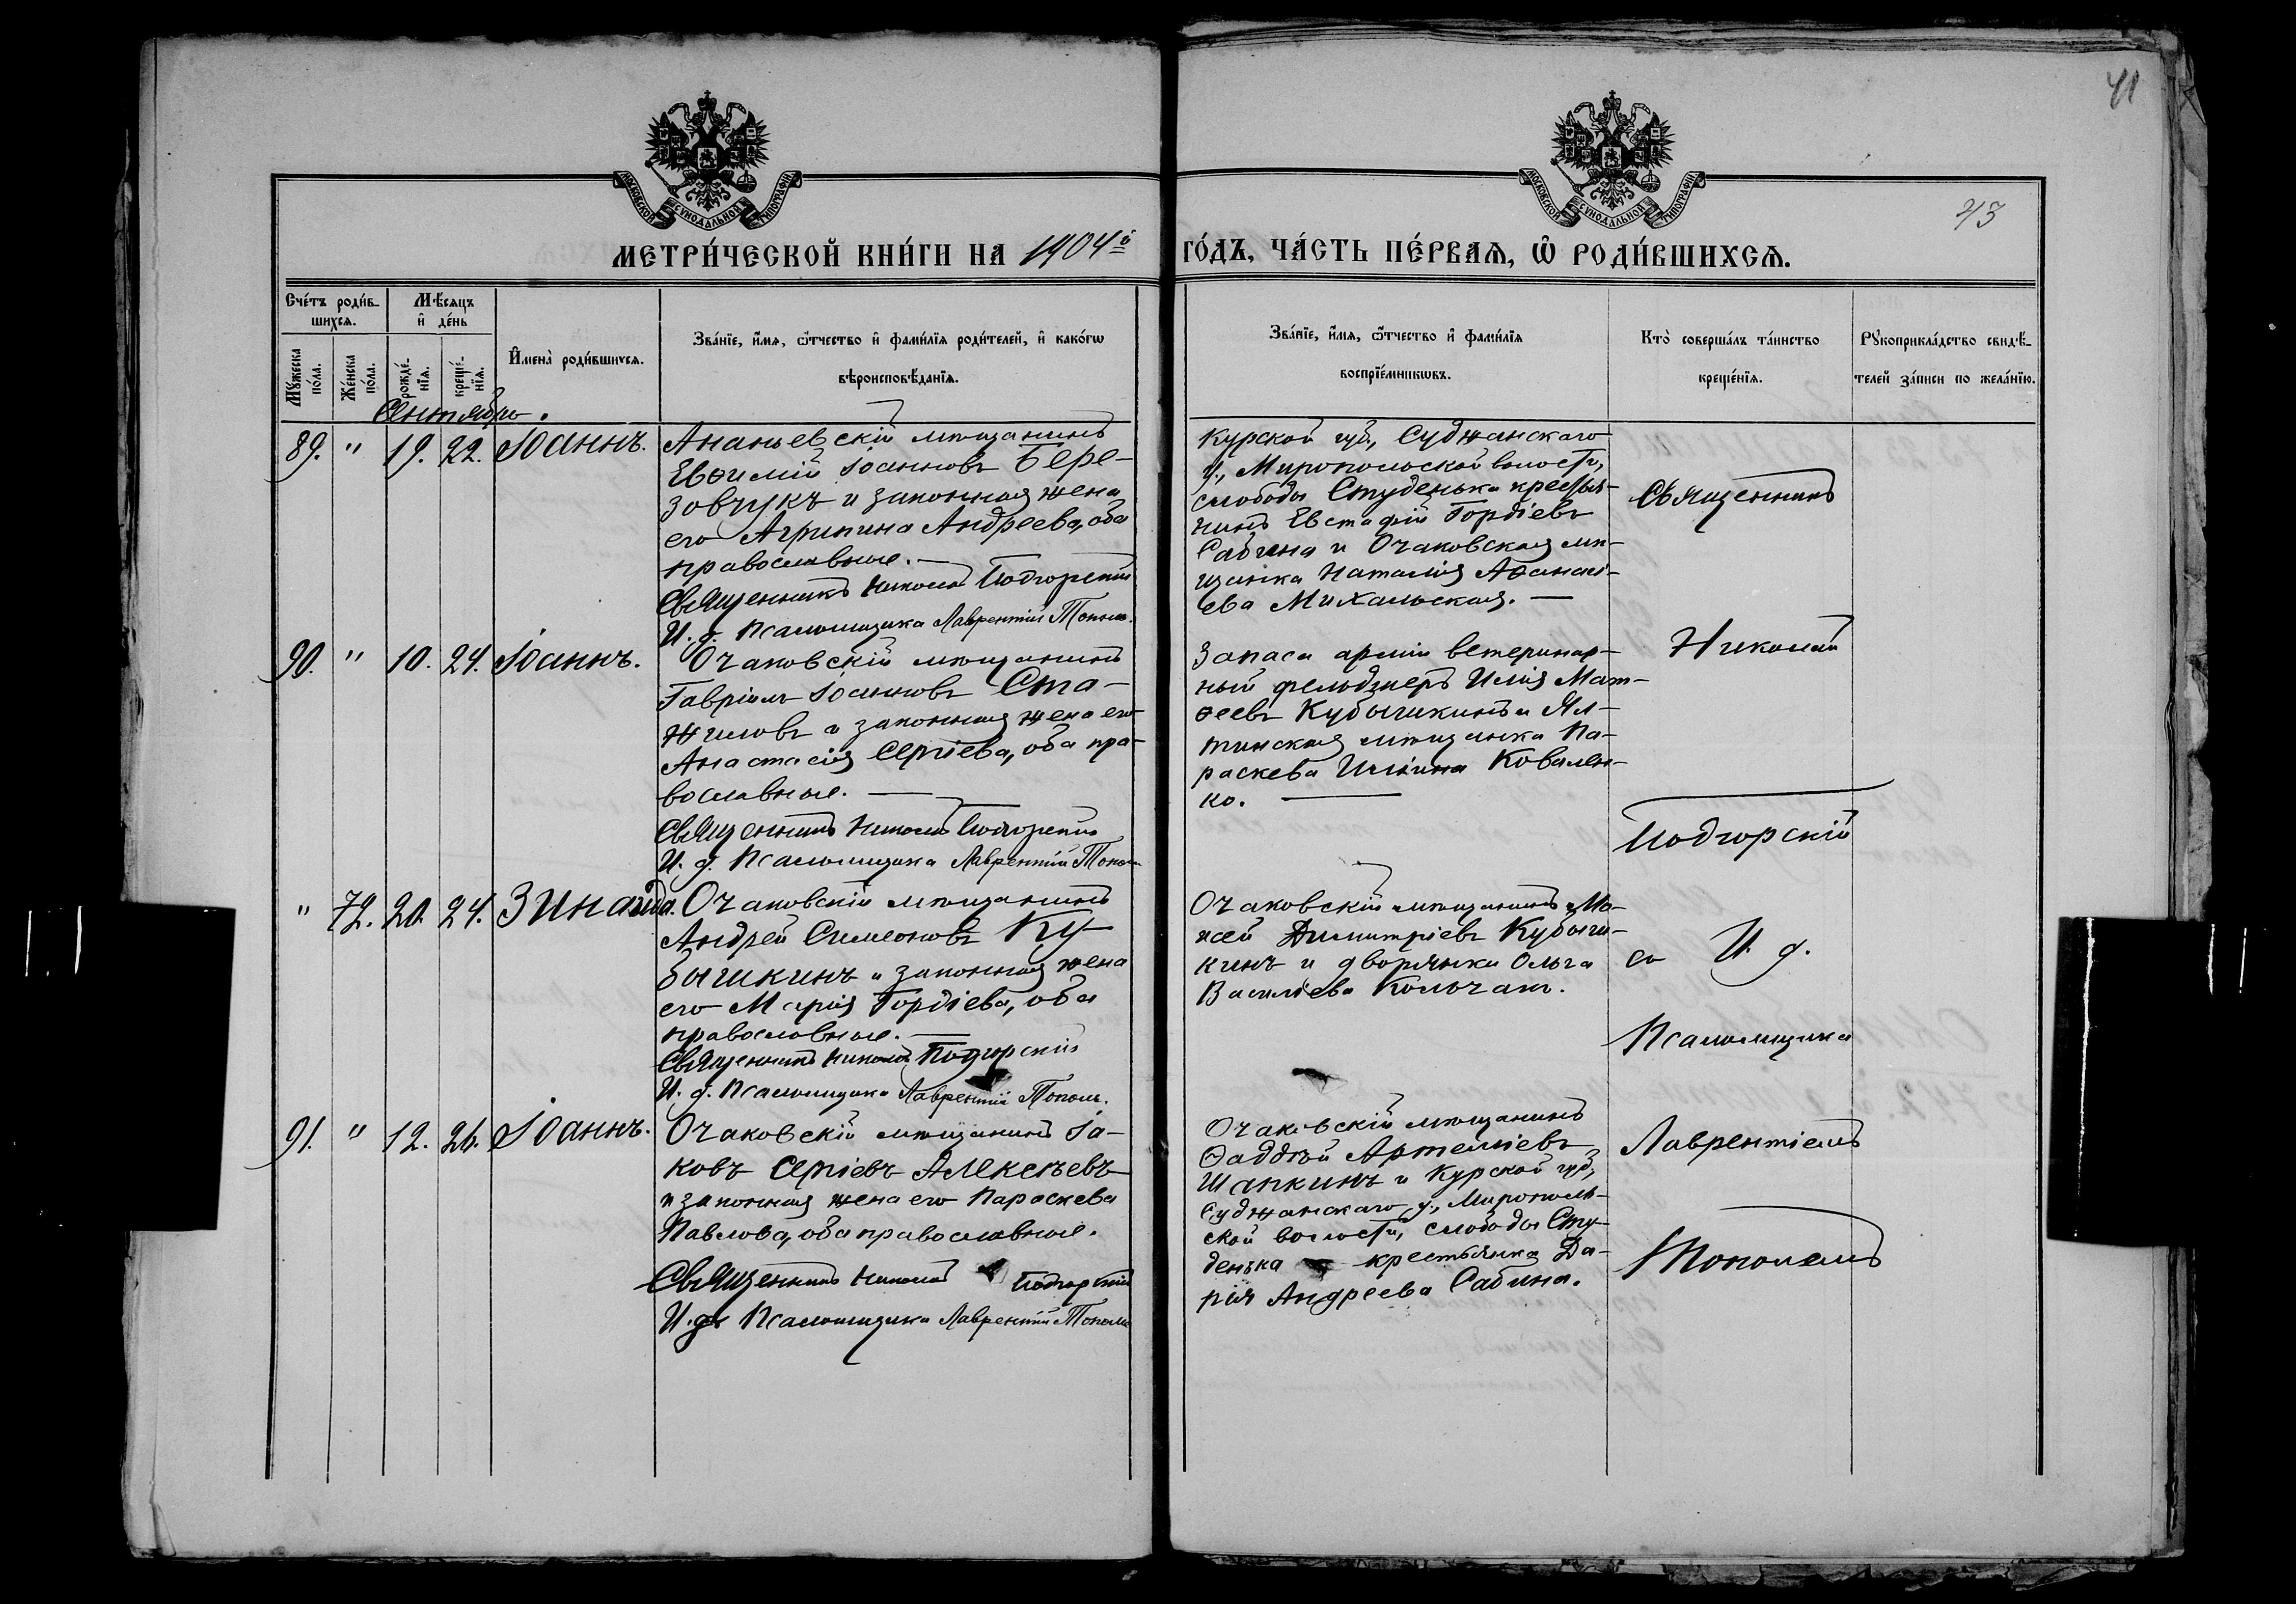 41
МОСКОВСКОЙ СѴНОДАЛЬНОЙ ТИПОГРАФІИ
МОСКОВСКОЙ СѴНОДАЛЬНОЙ ТИПОГРАФІИ
43
МЕТРИ́ЧЕСКОЙ КНИ́ГИ НА 1904й
ГО́ДЪ, ЧА́СТЬ ПЕ́РВАѦ, Ѽ РОДИ́ВШИХСѦ.
Сче́тъ роди́в-
шихсѧ.
Мѣ́сѧцъ
и҆ де́нь
Мꙋ́жеска
по́ла.
Же́нска
по́ла.
рожде́-
нїѧ.
креще́-
нїѧ.
И҆мена̀ роди́вшихсѧ.
Зва́нїе, и҆́мѧ, ѻ҆́тчество и҆ фами́лїѧ роди́телей, и҆ како́гѡ
вѣроисповѣ́данїѧ.
Зва́нїе, и҆́мѧ, ѻ҆́тчество и҆ фами́лїѧ
воспрїе́мникѡвъ.
Кто̀ соверша́лъ та́инство
креще́нїѧ.
Рꙋкоприкла́дство свидѣ́-
телей за́писи по жела́нїю.
Сентябрь.
89. " 19. 22. Іоаннъ.
Ананьевскій мѣщанинъ
Евѳимій Іоанновъ Бере-
зовчукъ и законная жена
его Агрипина Андреева, оба
православные. —
Священникъ Николай Подгорскій
И. д. Псаломщика Лаврентій Тополь.
Курской губ., Суджанскаго
у., Миропольской волости,
слободы Студенька крестья-
нинъ Евстафій Гордіевъ
Сабина и Очаковская мѣ-
щанка Наталія Аѳанасі-
ева Михальская. —
Священникъ
90. " 10. 24. Іоаннъ.
Очаковскій мѣщанинъ
Гавріилъ Іоанновъ Ста-
жиловъ и законная жена его
Анастасія Сергіева, оба пра-
вославные. —
Священникъ Николай Подгорскій
И. д. Псаломщика Лаврентій Тополь
Запаса арміи ветеринар-
ный фельдшеръ Илія Мат-
ѳеевъ Кубышкинъ и Ял-
тинская мѣщанка Па-
раскева Иліина Ковален-
ко. —
Николай
Подгорскій
" 72. 20. 24. Зинаида.
Очаковскій мѣщанинъ
Андрей Симеоновъ Ку-
бышкинъ и законная жена
его Марія Гордіева, оба
православные. —
Священникъ Николай Подгорскій
И. д. Псаломщика Лаврентій Тополь.
Очаковскій мѣщанинъ Мо-
исей Димитріевъ Кубыш-
кинъ и дворянка Ольга
Василіева Кольчакъ.
съ И. д.
Псаломщика
91. " 12. 26. Іоаннъ.
Очаковскій мѣщанинъ Іа-
ковъ Сергіевъ Алексѣевъ
и законная жена его Параскева
Павлова, оба православные.
Священникъ Николай Подгорскій
И. д. Псаломщика Лаврентій Тополь
Очаковскій мѣщанинъ
Ѳаддѣй Артеміевъ
Шапкинъ и Курской губ.,
Суджанскаго у., Мирополь-
ской волости, слободы Сту-
денька крестьянка Да-
рія Андреева Сабина.
Лаврентіемъ
Тополемъ